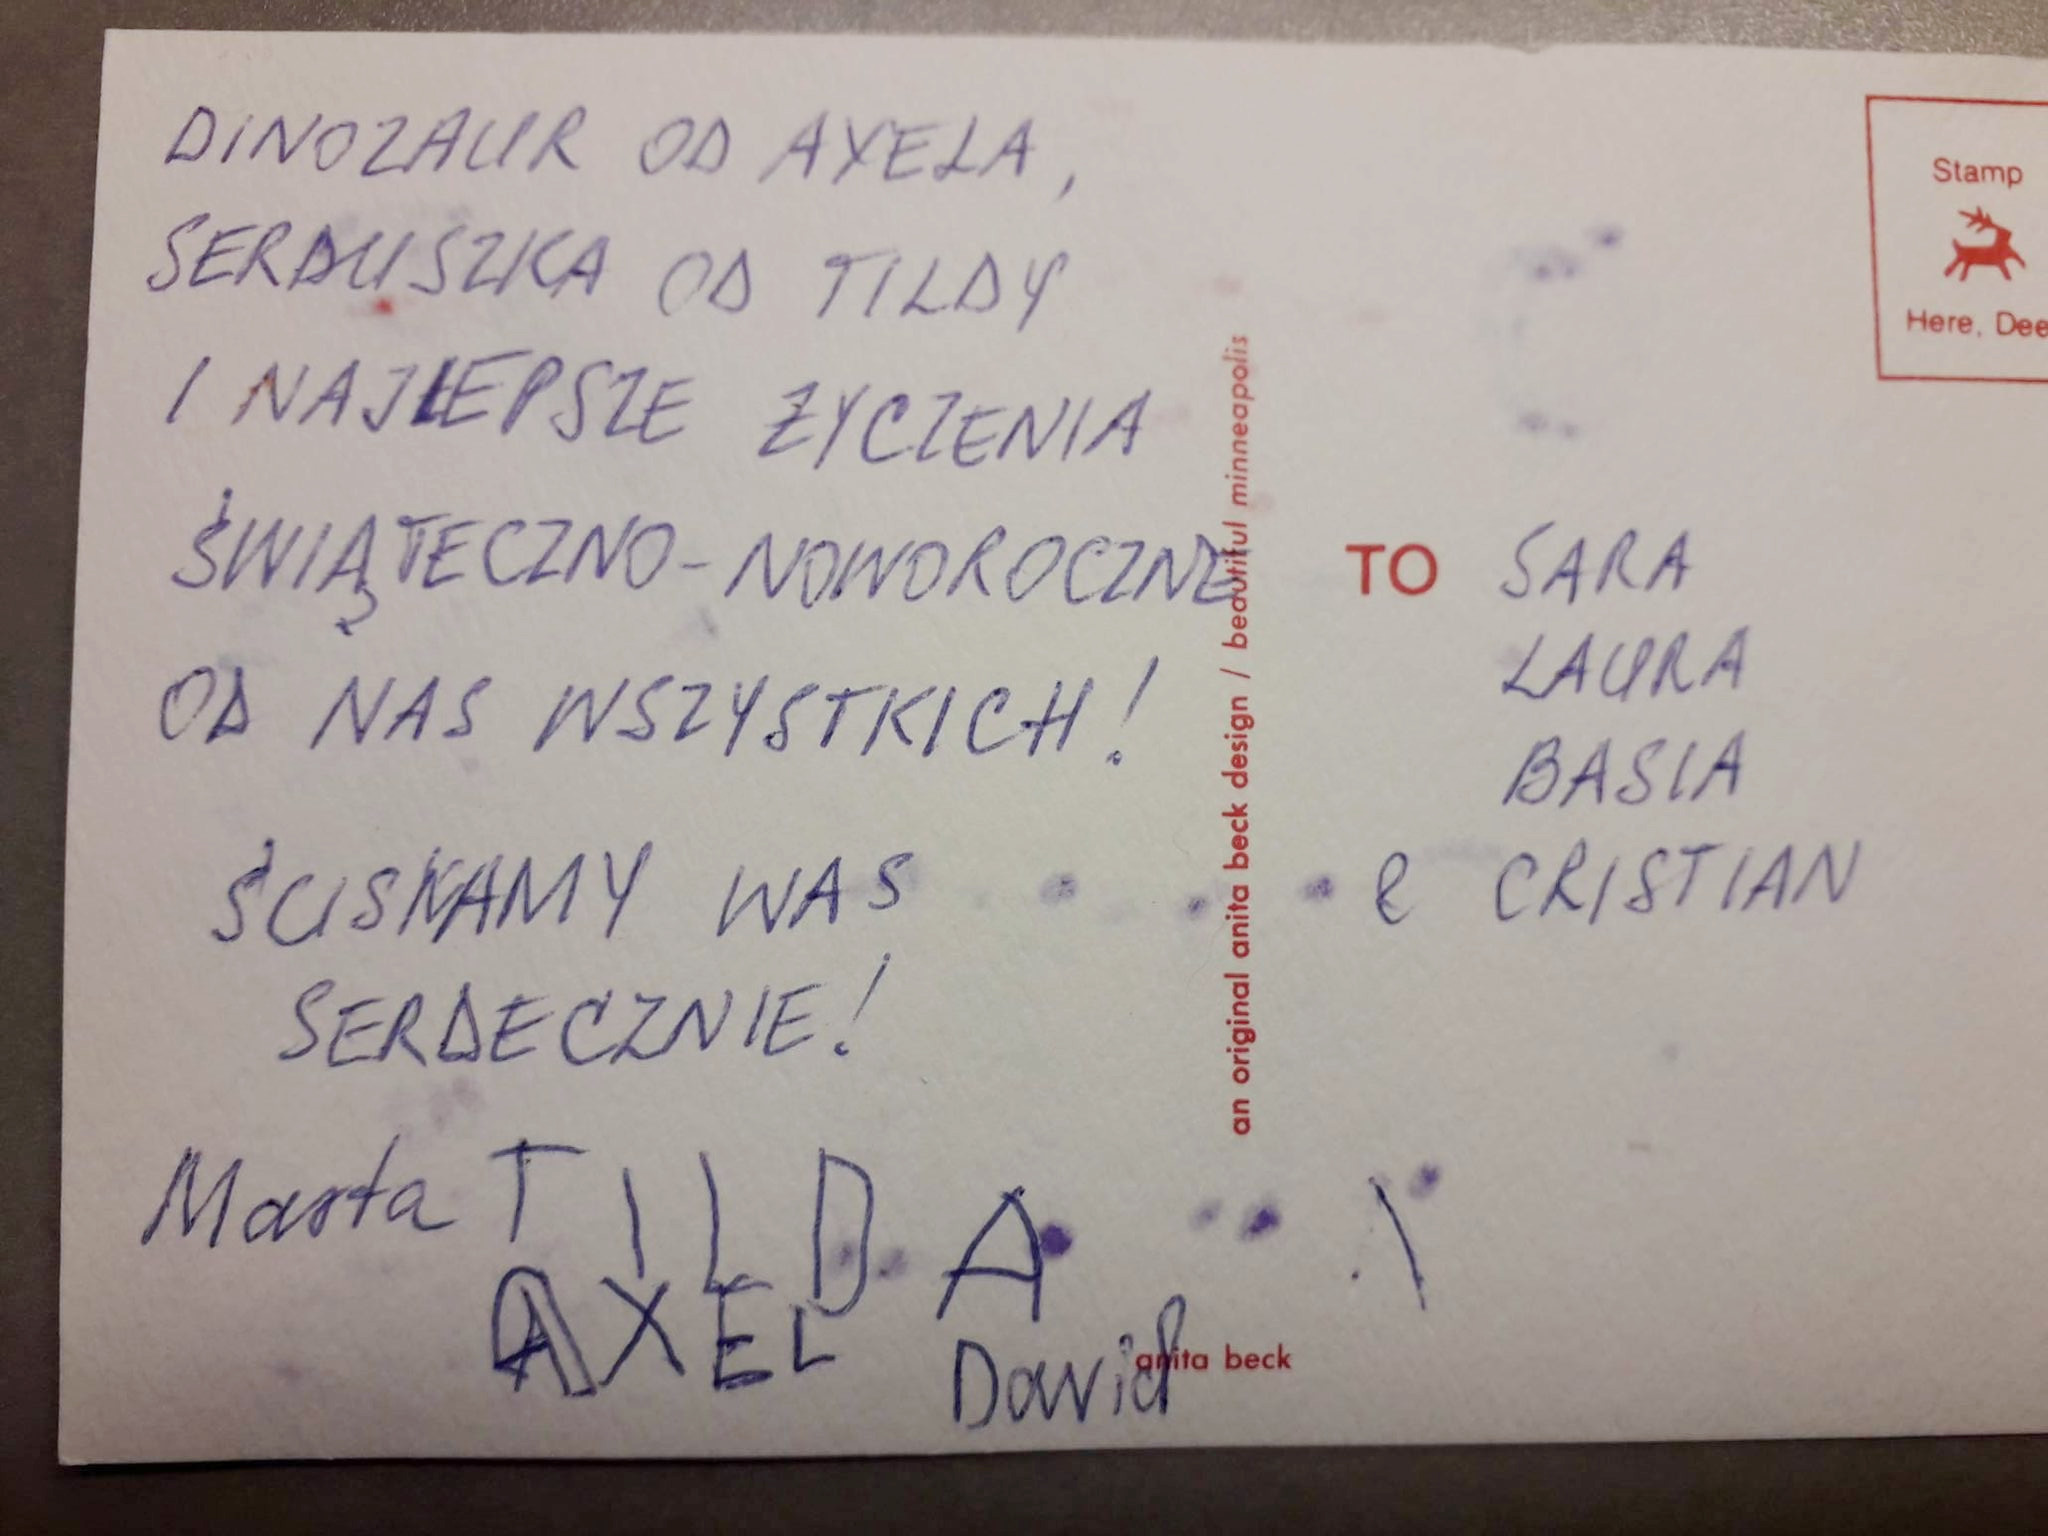 DINOZAUR OD AXELA,
SERDUSZKA OD TILDY
I NAJLEPSZE ŻYCZENIA
ŚWIĄTECZNO-NOWOROCZNE
OD NAS WSZYSTKICH!
ŚCISKAMY WAS
SERDECZNIE!
Marta TILDA
AXEL
David
an original anita beck design / beautiful minneapolis
anita beck
Stamp
Here, Dee
TO SARA
LAURA
BASIA
& CRISTIAN